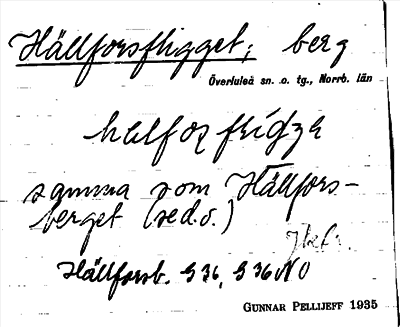 Hällforsfligget; berg
Överluleå sn. o. tg., Norrb. län
samma som Hällfors-
berget (se d. o.)
Hällforsb. S 36, S 36 NO
GUNNAR PELLIJEFF 1935